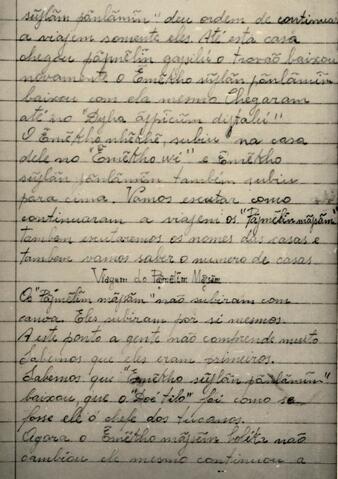 sʉ̃ỹlãm pãnlãmĩn" deu ordem de continuar
a viajem somente eles. Até esta casa
chegou pãjmẽlĩn o trovão baixou
novamente o Ẽmẽkho sʉ̃ỹlãm pãnlãmĩn
baixou com ela mesma Chegaram
até no
O Ẽmẽkho subiu na casa
dele no "Ẽmẽkho wi" e Ẽmẽkho
sʉ̃ỹlãm pãnlãmĩn também subiu
para cima. Vamos escutar como
continuaram a viajem os "Pãjmẽlĩn mãjsãm"
tambem escutaremos os nomes das casas e
tambem vamos saber o numero de casas.
Viagem do Pãjmẽlĩm Mãjsãm
Os "Pãjmẽlĩm mãjsãm" não subiram com
canoa. Eles subiram por si mesmos.
A este ponto a gente não comprende muito
Sabemos que eles eram primeiros.
Sabemos que "Ẽmẽkho sʉ̃ỹlãm pãnlãmĩn"
baixou, que o "Doétilo" foi como se
fosse ele o chefe dos tucanos.
Agora o Ẽmẽkho mãjsãm não
cambiou ele mesmo continuou a